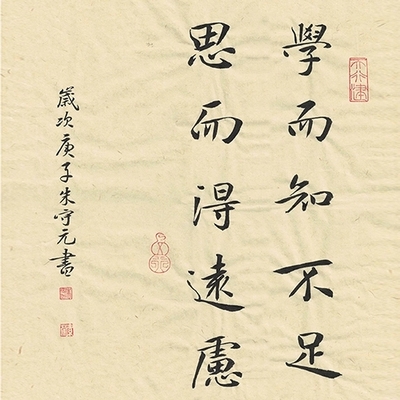 學而知不足
思而得遠慮
歲次庚子朱守元書